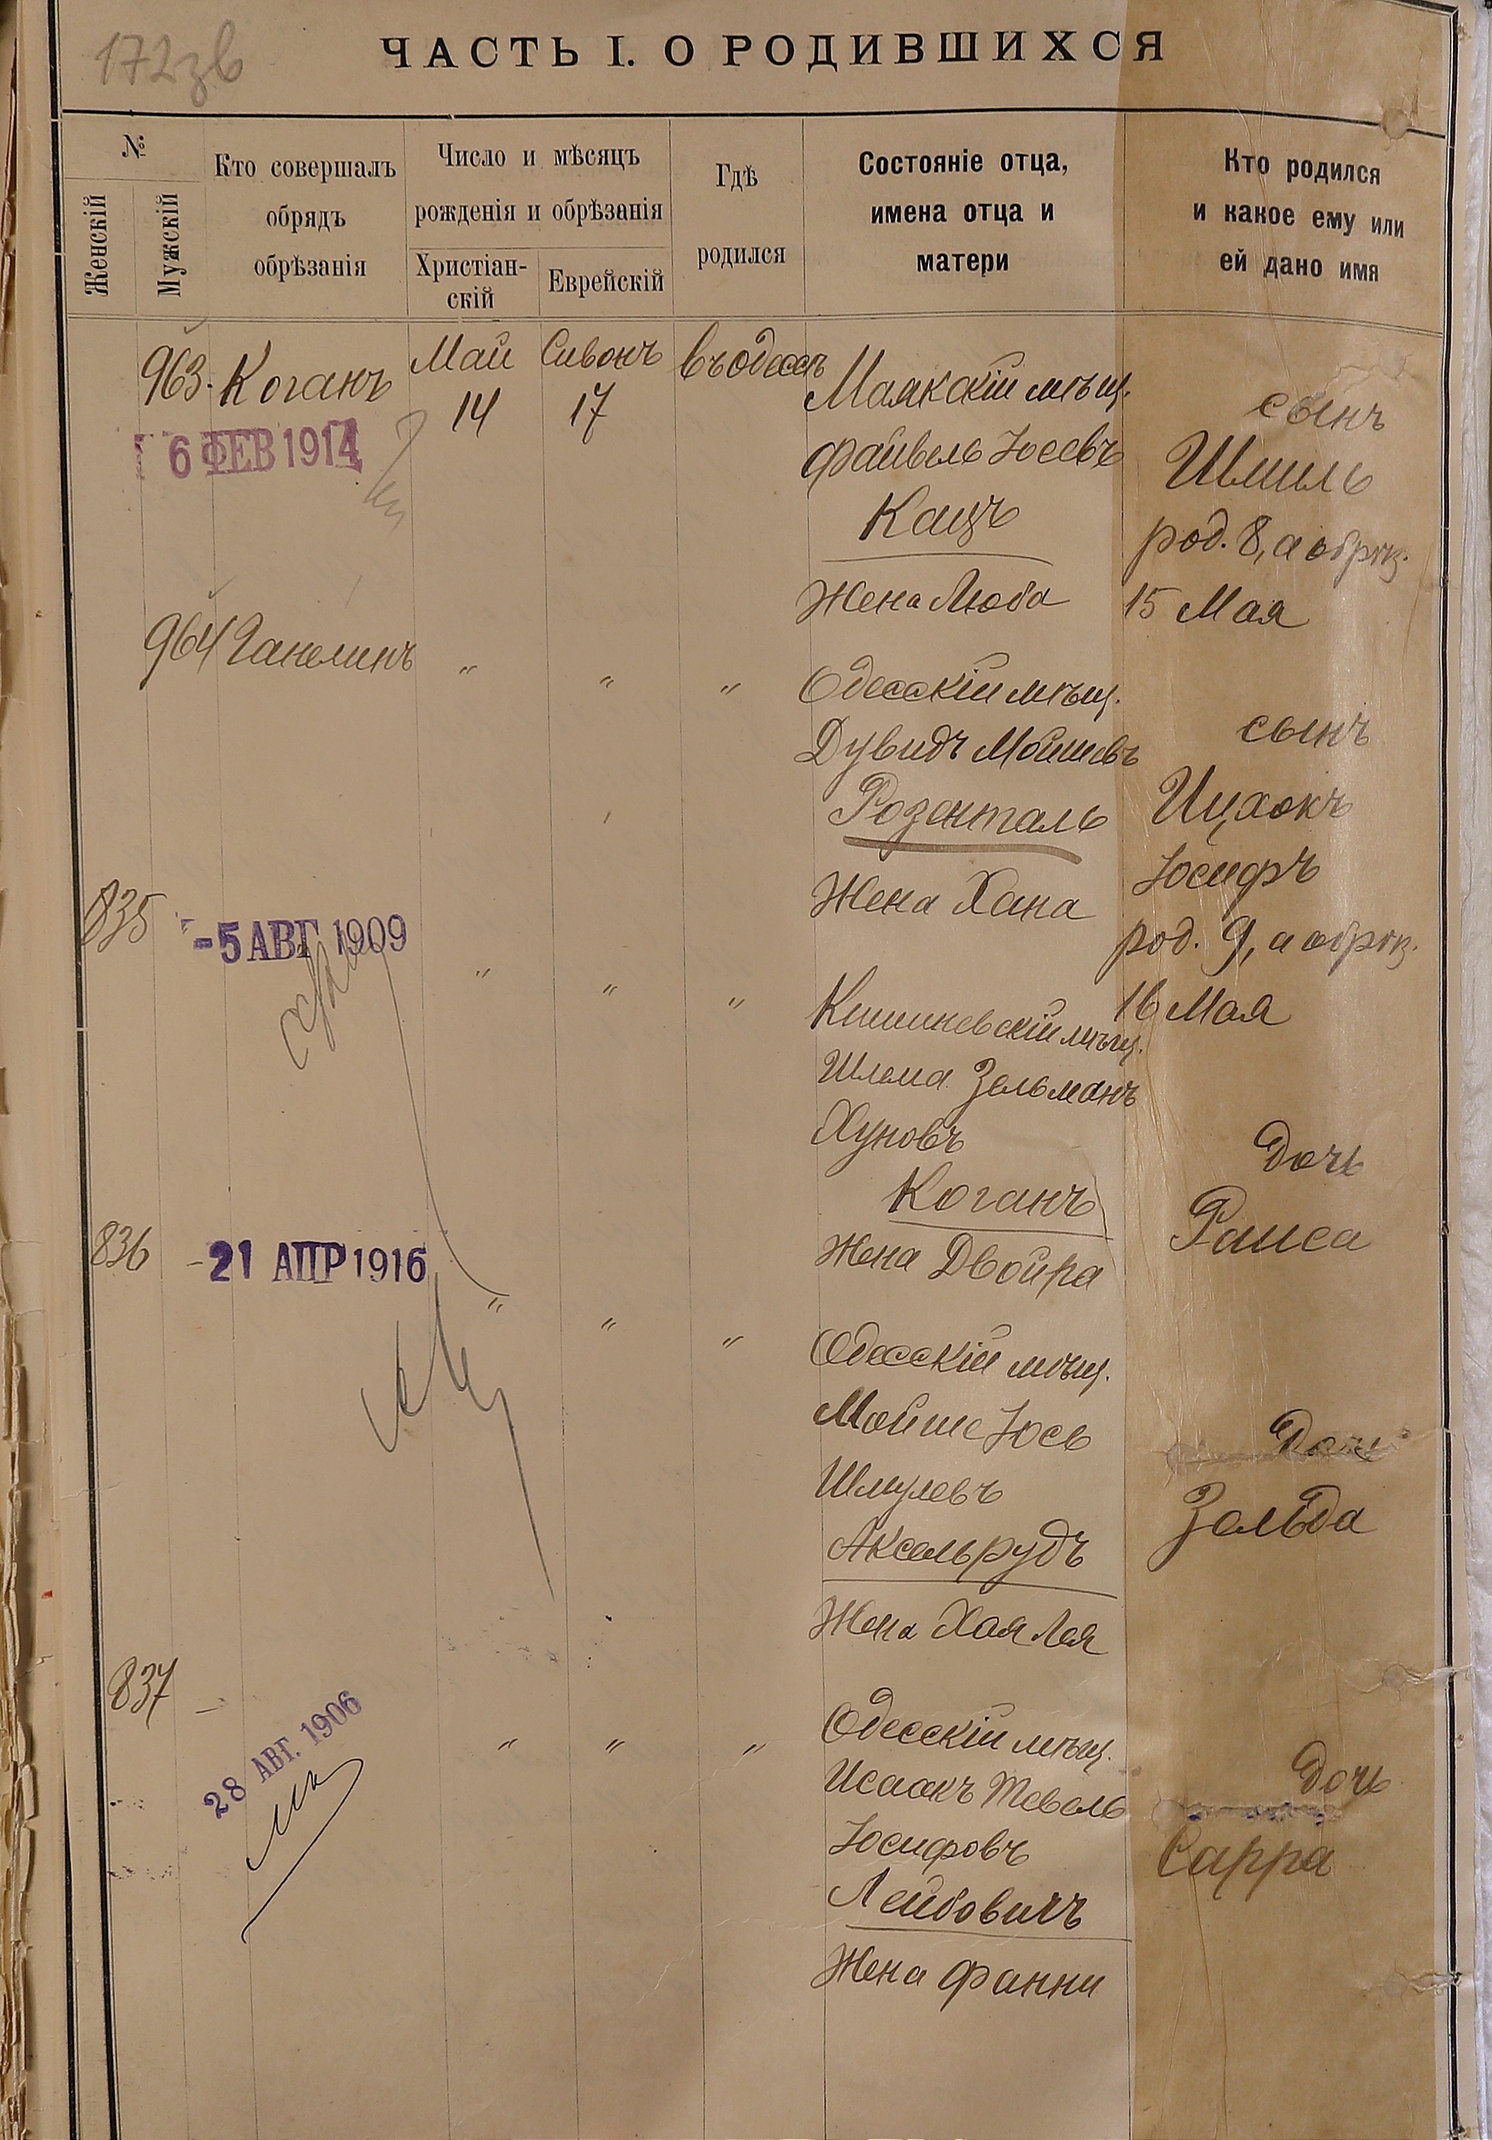 172зв
ЧАСТЬ I. О РОДИВШИХСЯ
№
Женскій
Мужскій
Кто совершалъ
обрядъ
обрѣзанія
Число и мѣсяцъ
рожденія и обрѣзанія
Христіан-
скій
Еврейскій
Гдѣ
родился
Состояніе отца,
имена отца и
матери
Кто родился
и какое ему или
ей дано имя
963. Коганъ
Май
14
Сивонъ
17
въ Одессѣ
Маякскій мѣщ.
Файвель Іосевъ
Кацъ
Жена Люба
сынъ
Шмиль
род. 8, а обрѣз.
15 Мая
6 ФЕВ 1914
964 Ганелинъ
" " "
Одесскій мѣщ.
Дувидъ Мойшевъ
Розенталь
Жена Хана
сынъ
Ицхокъ
Іосифъ
род. 9, а обрѣз.
16 Мая
835
-5 АВГ 1909
" " "
Кишиневскій мѣщ.
Шлема Зельманъ
Хуновъ
Коганъ
Жена Двойра
дочь
Раиса
836 -
21 АПР 1916
" " "
Одесскій мѣщ.
Мойше Іось
Шмулевъ
Аксельрудъ
Жена Хая Лея
дочь
Зельда
837 -
28 АВГ. 1906
" " "
Одесскій мѣщ.
Исаакъ Тевель
Іосифовъ
Лейбовичъ
Жена Фанни
дочь
Сарра